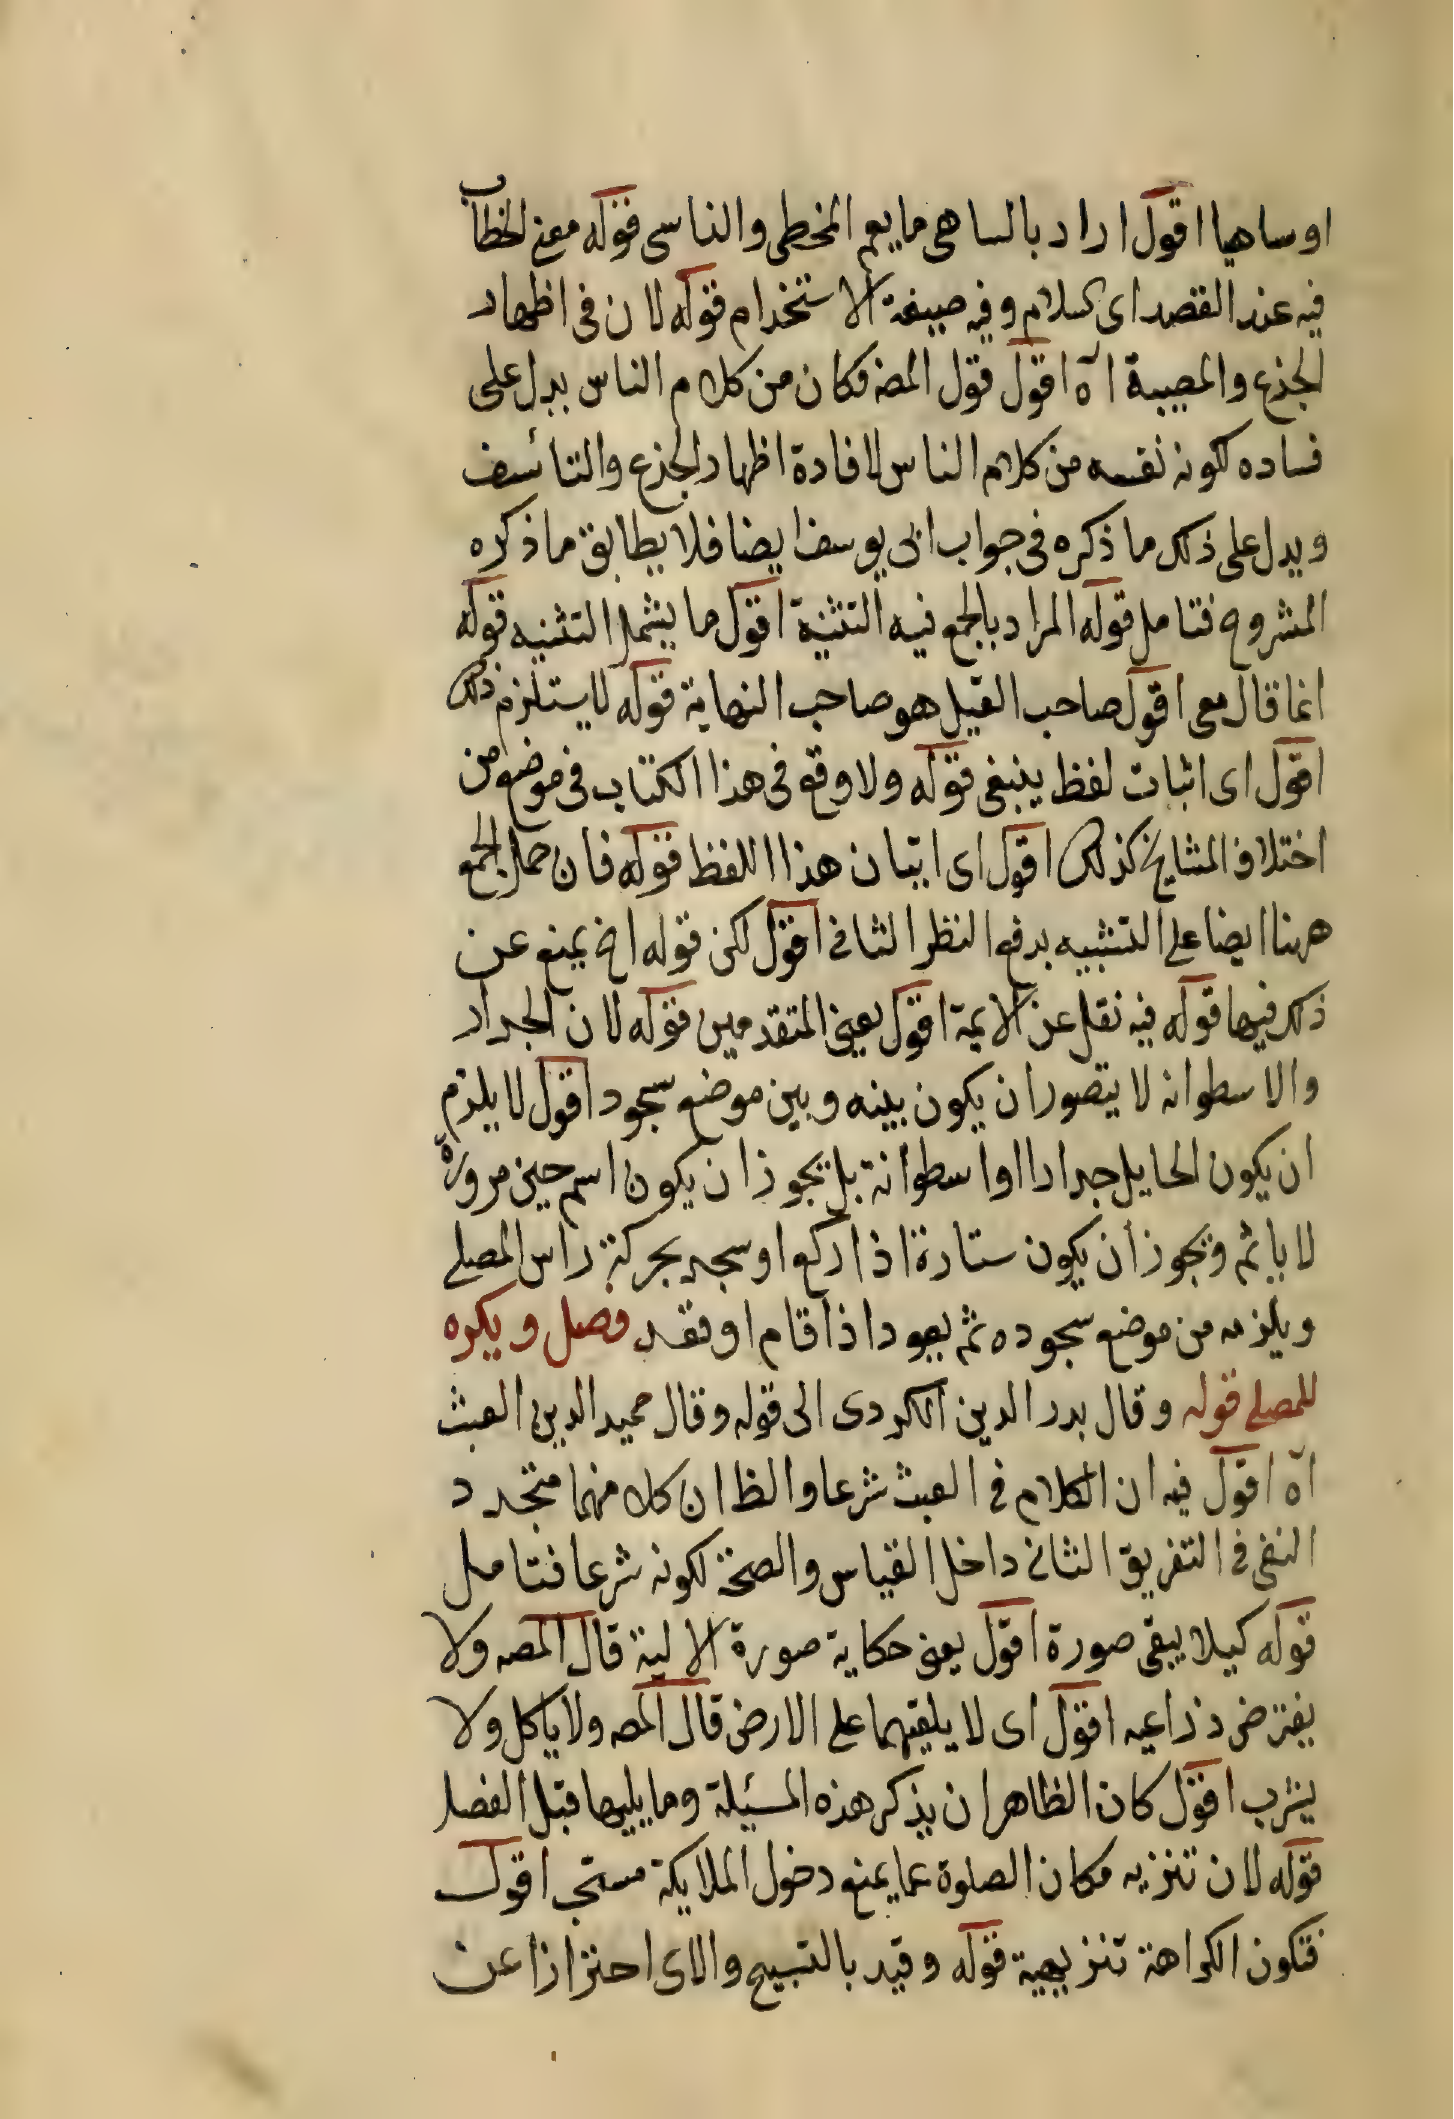 او ساهيا اقول اراد بالساهى ما يعم المخطى والناسى قوله معنى الخطاب
فيه عند القصد اى كلام وفيه صيغة الاستخدام قوله لان فى اظهار
الجذع والمصيبة اه اقول قول المص فكان من كلام الناس يدل على
فساده لكونه نفسه من كلام الناس لا فادة اظهار الجزع والتائسف
ويدل على ذلك ما ذكره فى جواب ابى يوسف ايضا فلا يطابق ما ذكره
المشروح فتامل قوله المراد بالجمع فيه التثنية اقول ما يشمل التثنيه قوله
انما قال معى اقول صاحب القيل هو صاحب النهاية قوله لا يستلزم ذلك
اقول اى اثبات لفظ ينبغى قوله ولا وقع فى هذا الكتاب فى موضع من
اختلاف المشايخ كذلك اقول اى اتيان هذا اللفظ قوله فان حمل الجمع
ههنا ايضا على التثنيه يدفع النظر الثانى اقول لكن قوله اخ يمنع عن
ذلك فيها قوله فيه نقل عن الايمة اقول يعنى المتقدمين قوله لان الجدار
والاسطوانه لا يتصور ان يكون بينه وبين موضع سجود اقول لا يلزم
ان يكون الحايل جدارا او اسطوانة بل يجوز ان يكون اسم حين مروره
لا يائم ويجوز ان يكون ستارة اذا ركع او سجد يحركة راس المصلى
ويلزمه من موضع سجوده ثم يعود اذا قام او وقعد فصل ويكره
للمصلى قوله وقال بدر الدين الكردى الى قوله وقال حميد الدين العبث
اه اقول فيه ان الكلام فى العبث شرعا والظ ان كلا منهما متجدد
النفى فى التفريق الثانى داخل القياس والصحة لكونه شرعا فتامل
قوله كيلا يبقى صورة اقول يعنى حكاية صورة الالية قال المصه ولا
يفترض ذراعيه اقول اى لا يلقيهما على الارض قال المصه ولا ياكل ولا
يشرب اقول كان الظاهر ان يذكر هذه المسئيلة وما يليها قبل الفصل
قوله لان تنزيه مكان الصلوة عما يمنع دخول الملايكة مستحب اقول
فتكون الكراهة تنزيهية قوله وقيد بالتسبيح والاى احترازا عن